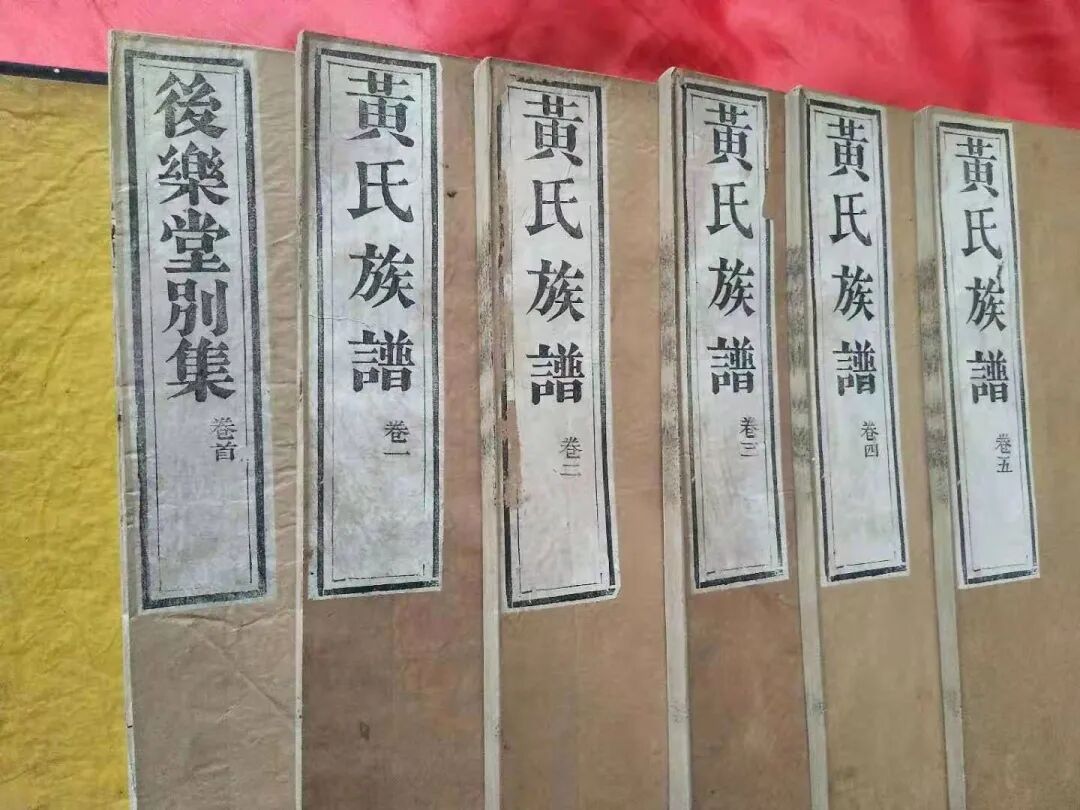 後樂堂別集
卷首
黃氏族譜
卷一
黃氏族譜
卷二
黃氏族譜
卷三
黃氏族譜
卷四
黃氏族譜
卷五